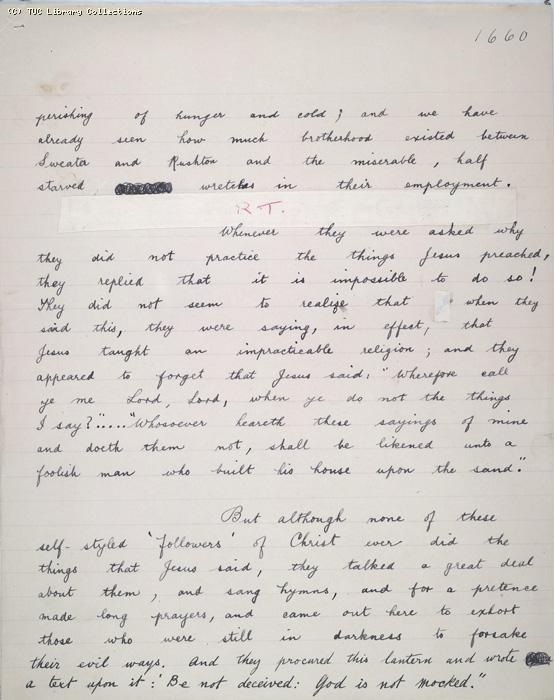 (C) TUC Library Collections
1660
perishing of hunger and cold; and we have
already seen how much brotherhood existed between
Sweater and Rushton and the miserable, half
starved wretches in their employment.
R.T.
Whenever they were asked why
they did not practice the things Jesus preached,
they replied that it is impossible to do so!
They did not seem to realize that when they
said this, they were saying, in effect, that
Jesus taught an impracticable religion; and they
appeared to forget that Jesus said: "Wherefore call
ye me Lord, Lord, when ye do not the things
I say?"....."Whosoever heareth these sayings of mine
and doeth them not, shall be likened unto a
foolish man who built his house upon the sand."
But although none of these
self-styled 'followers' of Christ ever did the
things that Jesus said, they talked a great deal
about them, and sang hymns, and for a pretence
made long prayers, and came out here to exhort
those who were still in darkness to forsake
their evil ways. And they procured this lantern and wrote
a text upon it: 'Be not deceived: God is not mocked."